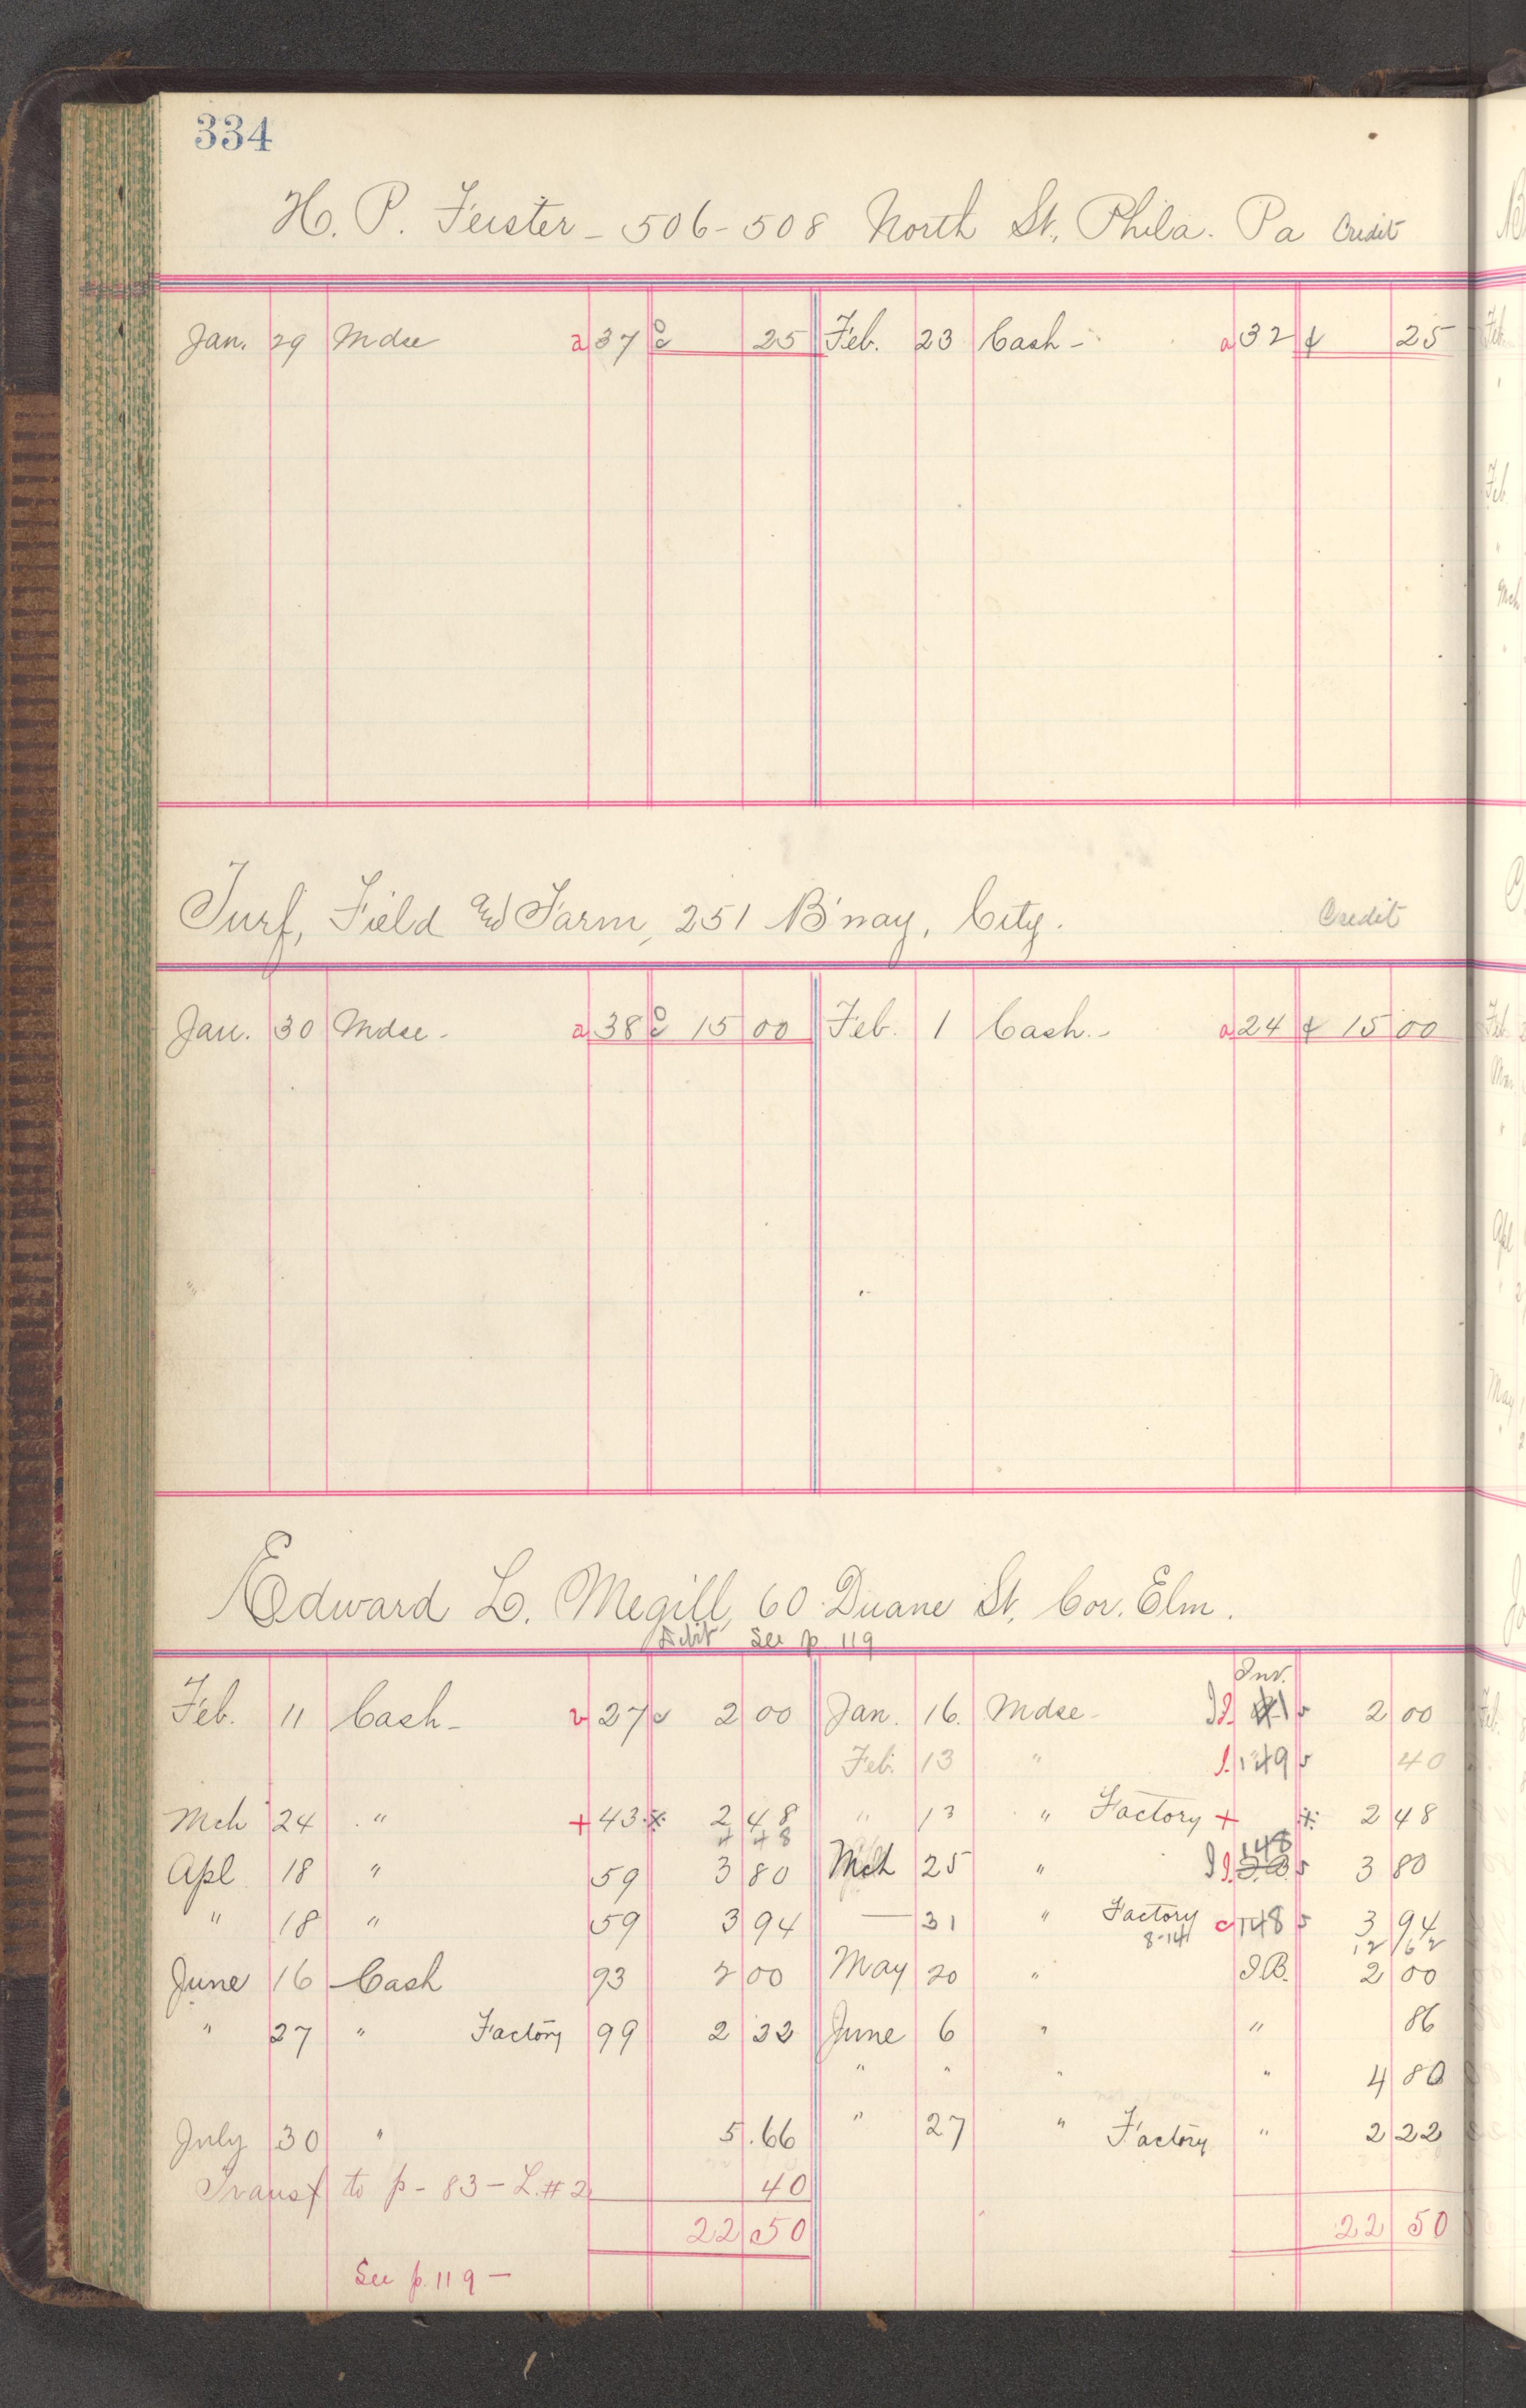 334
H. P. Feister - 506-508 North St., Phila. Pa Credit
Jan. 29 Mdse a 37 25 Feb. 23 Cash - a 32 25
Turf, Field and Farm, 251 B'way, City. Credit
Jan. 30 Mdse - a 38 15 00 Feb. 1 Cash. - a 24 15 00
Edward L. Megill, 60 Duane St. Cor. Elm.
Debit See p 119
Inv.
Feb. 11 Cash - 27 2 00 Jan. 16. Mdse - 2 00
Feb. 13 " 149 40
Mch 24 " + 43 2 48 " 13 " Factory + 2 48
4 48
148
Apl 18 " 59 3 80 Mch 25 " 3 80
" 18 " 59 3 94 — 31 " Factory c 148 3 94
8-14 12 62
June 16 Cash 93 2 00 May 20 " I.B. 2 00
" 27 " Factory 99 2 22 June 6 " " 86
" " " " 4 80
July 30 " 5.66 " 27 " Factory " 2 22
Transf to p - 83 - L. # 2 40
22 50 22 50
See p. 119 —